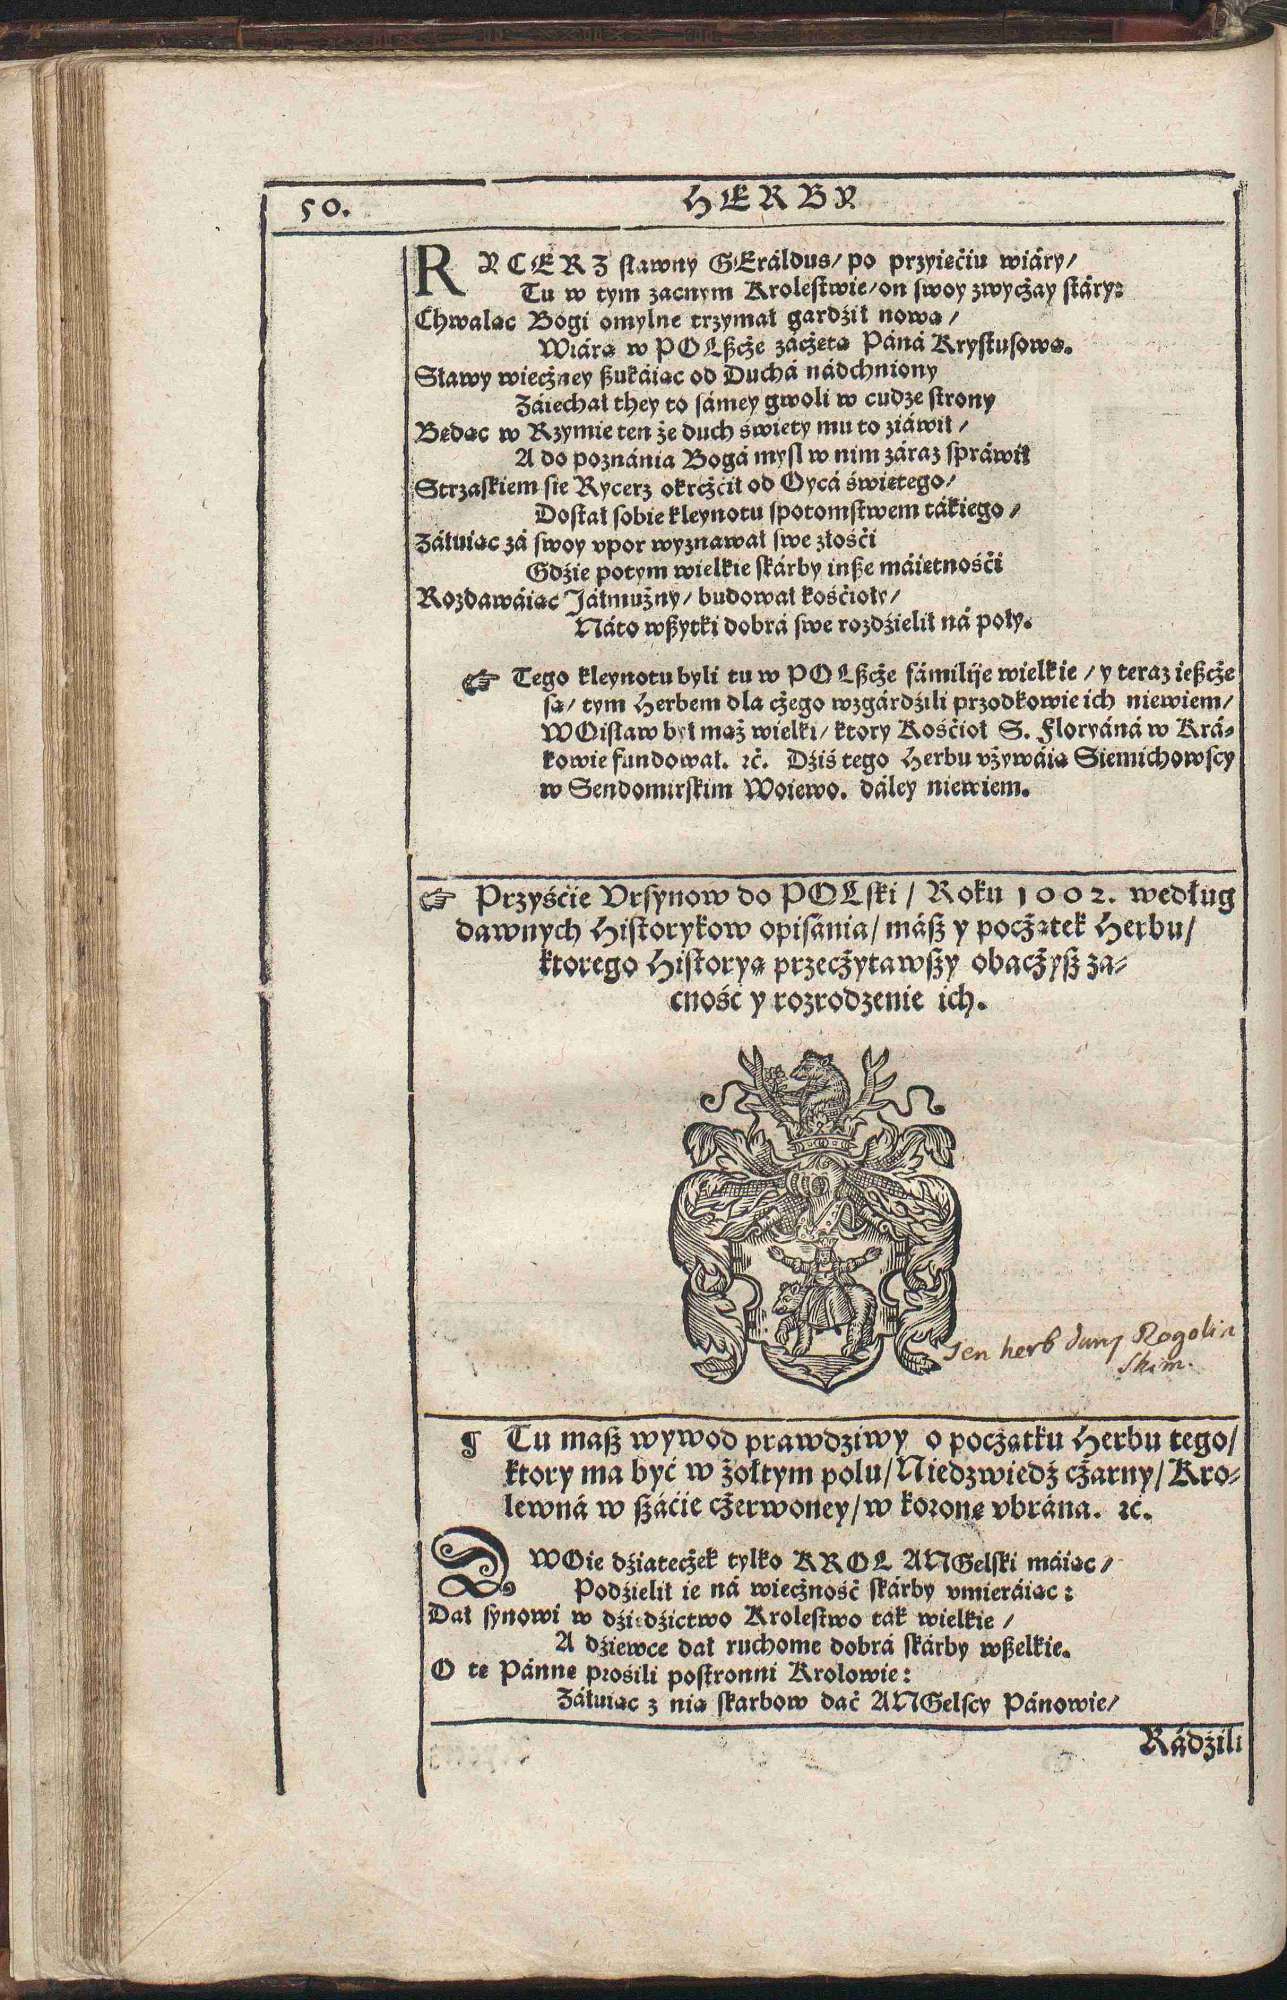 50.
HERBY.
RYCERZ sławny GEráldus/ po przyięćiu wiáry/
Tu w tym zacnym Krolestwie/ on swoy zwyczay stáry:
Chwaląc Bogi omylne trzymał gardźił nową/
Wiárą w POLszcze záczętą Páná Krystusową.
Sławy wieczney szukáiąc od Duchá nádchniony
Záiechał they to sámey gwoli w cudze strony
Będąc w Rzymie ten że duch święty mu to ziáwił/
A do poznánia Bogá mysl w nim záraz spráwił
Strzaskiem sie Rycerz okrzćił od Oycá świętego/
Dostał sobie kleynotu spotomstwem tákiego/
Záłuiąc zá swoy vpor wyznawał swe złośći
Gdźie potym wielkie skárby insze máiętnośći
Rozdawáiąc Jáłmużny/ budował kośćioły/
Náto wszytki dobrá swe rozdźielił ná poły.
☞ Tego kleynotu byli tu w POLszcze fámilije wielkie/ y teraz ieszcze
są/ tym Herbem dla czego wzgárdźili przodkowie ich niewiem/
WOisław był mąż wielki/ ktory Kośćioł S. Floryáná w Krá-
kowie fundował. ꝛč. Dźiś tego Herbu vżywáią Siemichowscy
w Sendomirskim Woiewo. dáley niewiem.
☞ Przyśćie Vrsynow do POLski/ Roku 1002. według
dawnych Historykow opisánia/ mász y początek Herbu/
ktorego Historyą przeczytawszy obaczysz za-
cność y rozrodzenie ich.
Ten herb dany Rogolin
skim.
¶ Tu masz wywod prawdziwy o początku Herbu tego/
ktory ma być w żołtym polu/ Niedzwiedź czarny/ Kro-
lewná w száćie czerwoney/ w koronę vbrána. ꝛč.
DWOie dźiateczek tylko KROL ANGelski máiąc/
Podźielił ie ná wieczność skárby vmieráiąc:
Dał synowi w dźiedźictwo Krolestwo ták wielkie/
A dźiewce dał ruchome dobrá skárby wszelkie.
O tę Pánnę prośili postronni Krolowie:
Záłuiąc z nią skarbow dáć ANGelscy Pánowie/
Rádźili